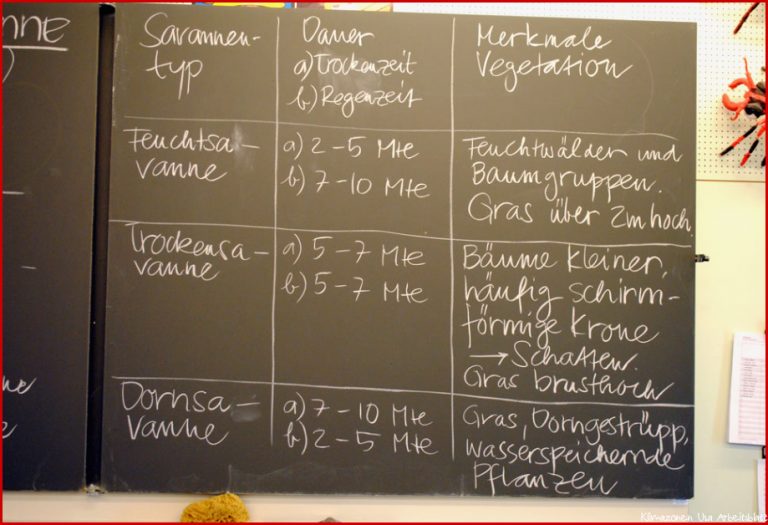 NNE
)
Savannen-
typ
Dauer
a) Trockenzeit
b) Regenzeit
Merkmale
Vegetation
Feuchtsa-
vanne
a) 2-5 Mte
b) 7-10 Mte
Feuchtwälder und
Baumgruppen.
Gras über 2m hoch.
Trockensa-
vanne
a) 5-7 Mte
b) 5-7 Mte
Bäume kleiner,
häufig schirm-
förmige Krone
→ Schatten.
Gras brusthoch
Dornsa-
vanne
a) 7-10 Mte
b) 2-5 Mte
Gras, Dorngestrüpp,
wasserspeichernde
Pflanzen
Klimazonen Usa Arbeitsblatt